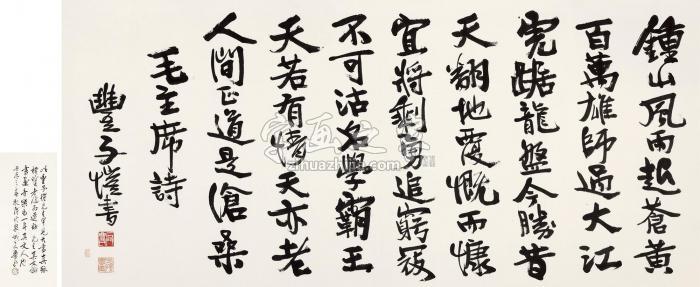 鍾山風雨起蒼黃
百萬雄師過大江
虎踞龍盤今勝昔
天翻地覆慨而慷
宜將剩勇追窮寇
不可沽名學霸王
天若有情天亦老
人間正道是滄桑
毛主席詩
豐子愷書
字画之家
zihuazhijia.com